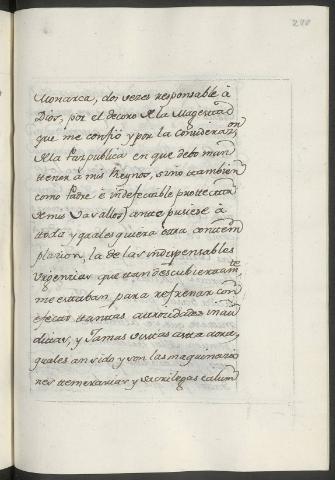 210
Monarca, dos vezes responsable â
Dios, por el decoro de la Magestad
que me confiò y por la consideraz.on
de la Paz publica en que debo man
tener à mis Reynos, sino tambien
como Padre è indefectible protector
de mis Vasallos) antepusiese â
toda y qualesquiera otra contem
plazion, la de las indispensables
urgenzias que tan descubiertam.te
me estaban para refrenar con
efecto tantas atrozidades inau
ditas, y Jamas vistas asta aora,
quales an sido y son las maquinazio
nes temerarias y sacrilegas calum